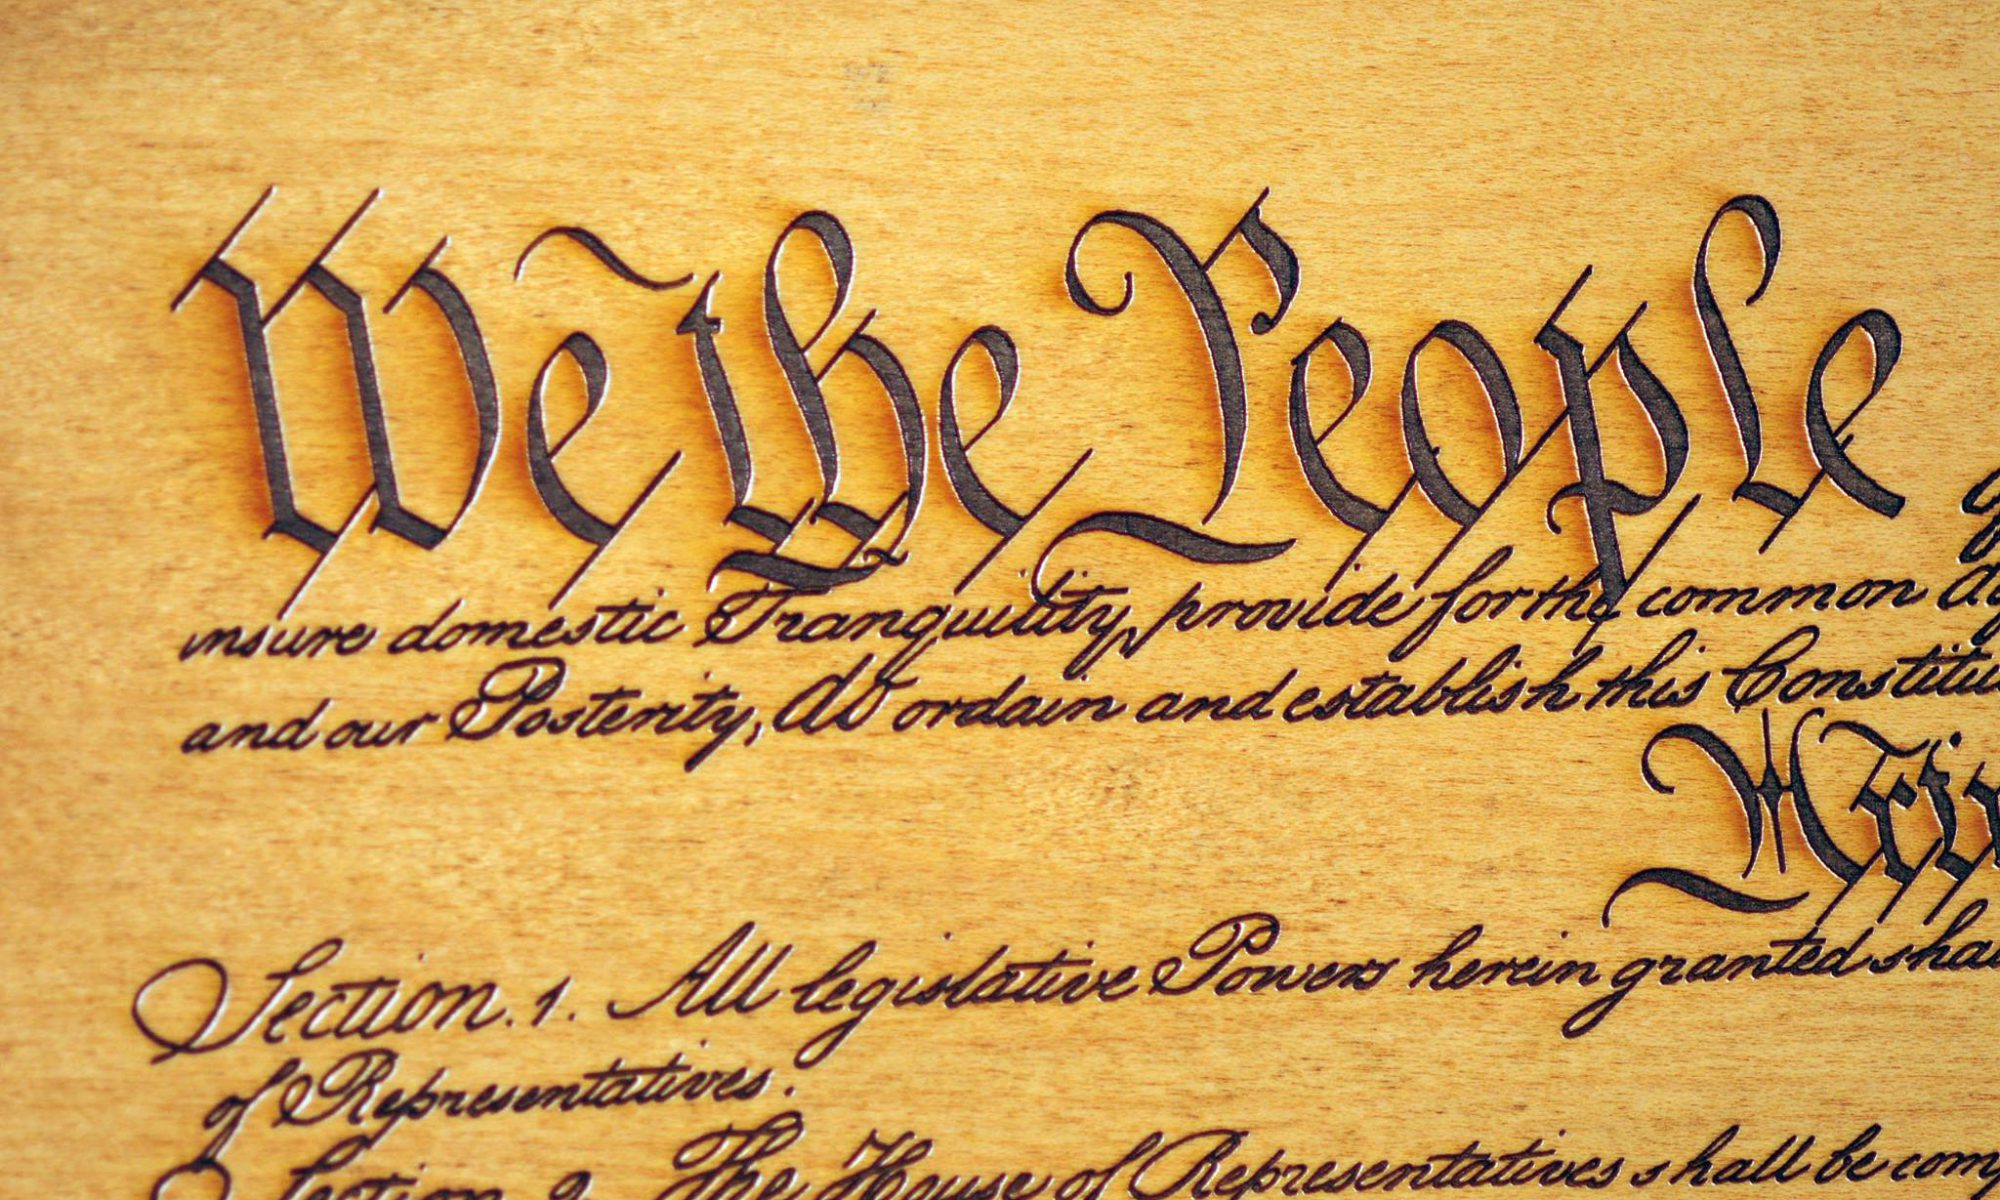 We the People
insure domestic Tranquility, provide for the common
and our Posterity, do ordain and establish this
Section. 1. All legislative Powers herein granted
of Representatives.
Section 2. The House of Representatives shall be